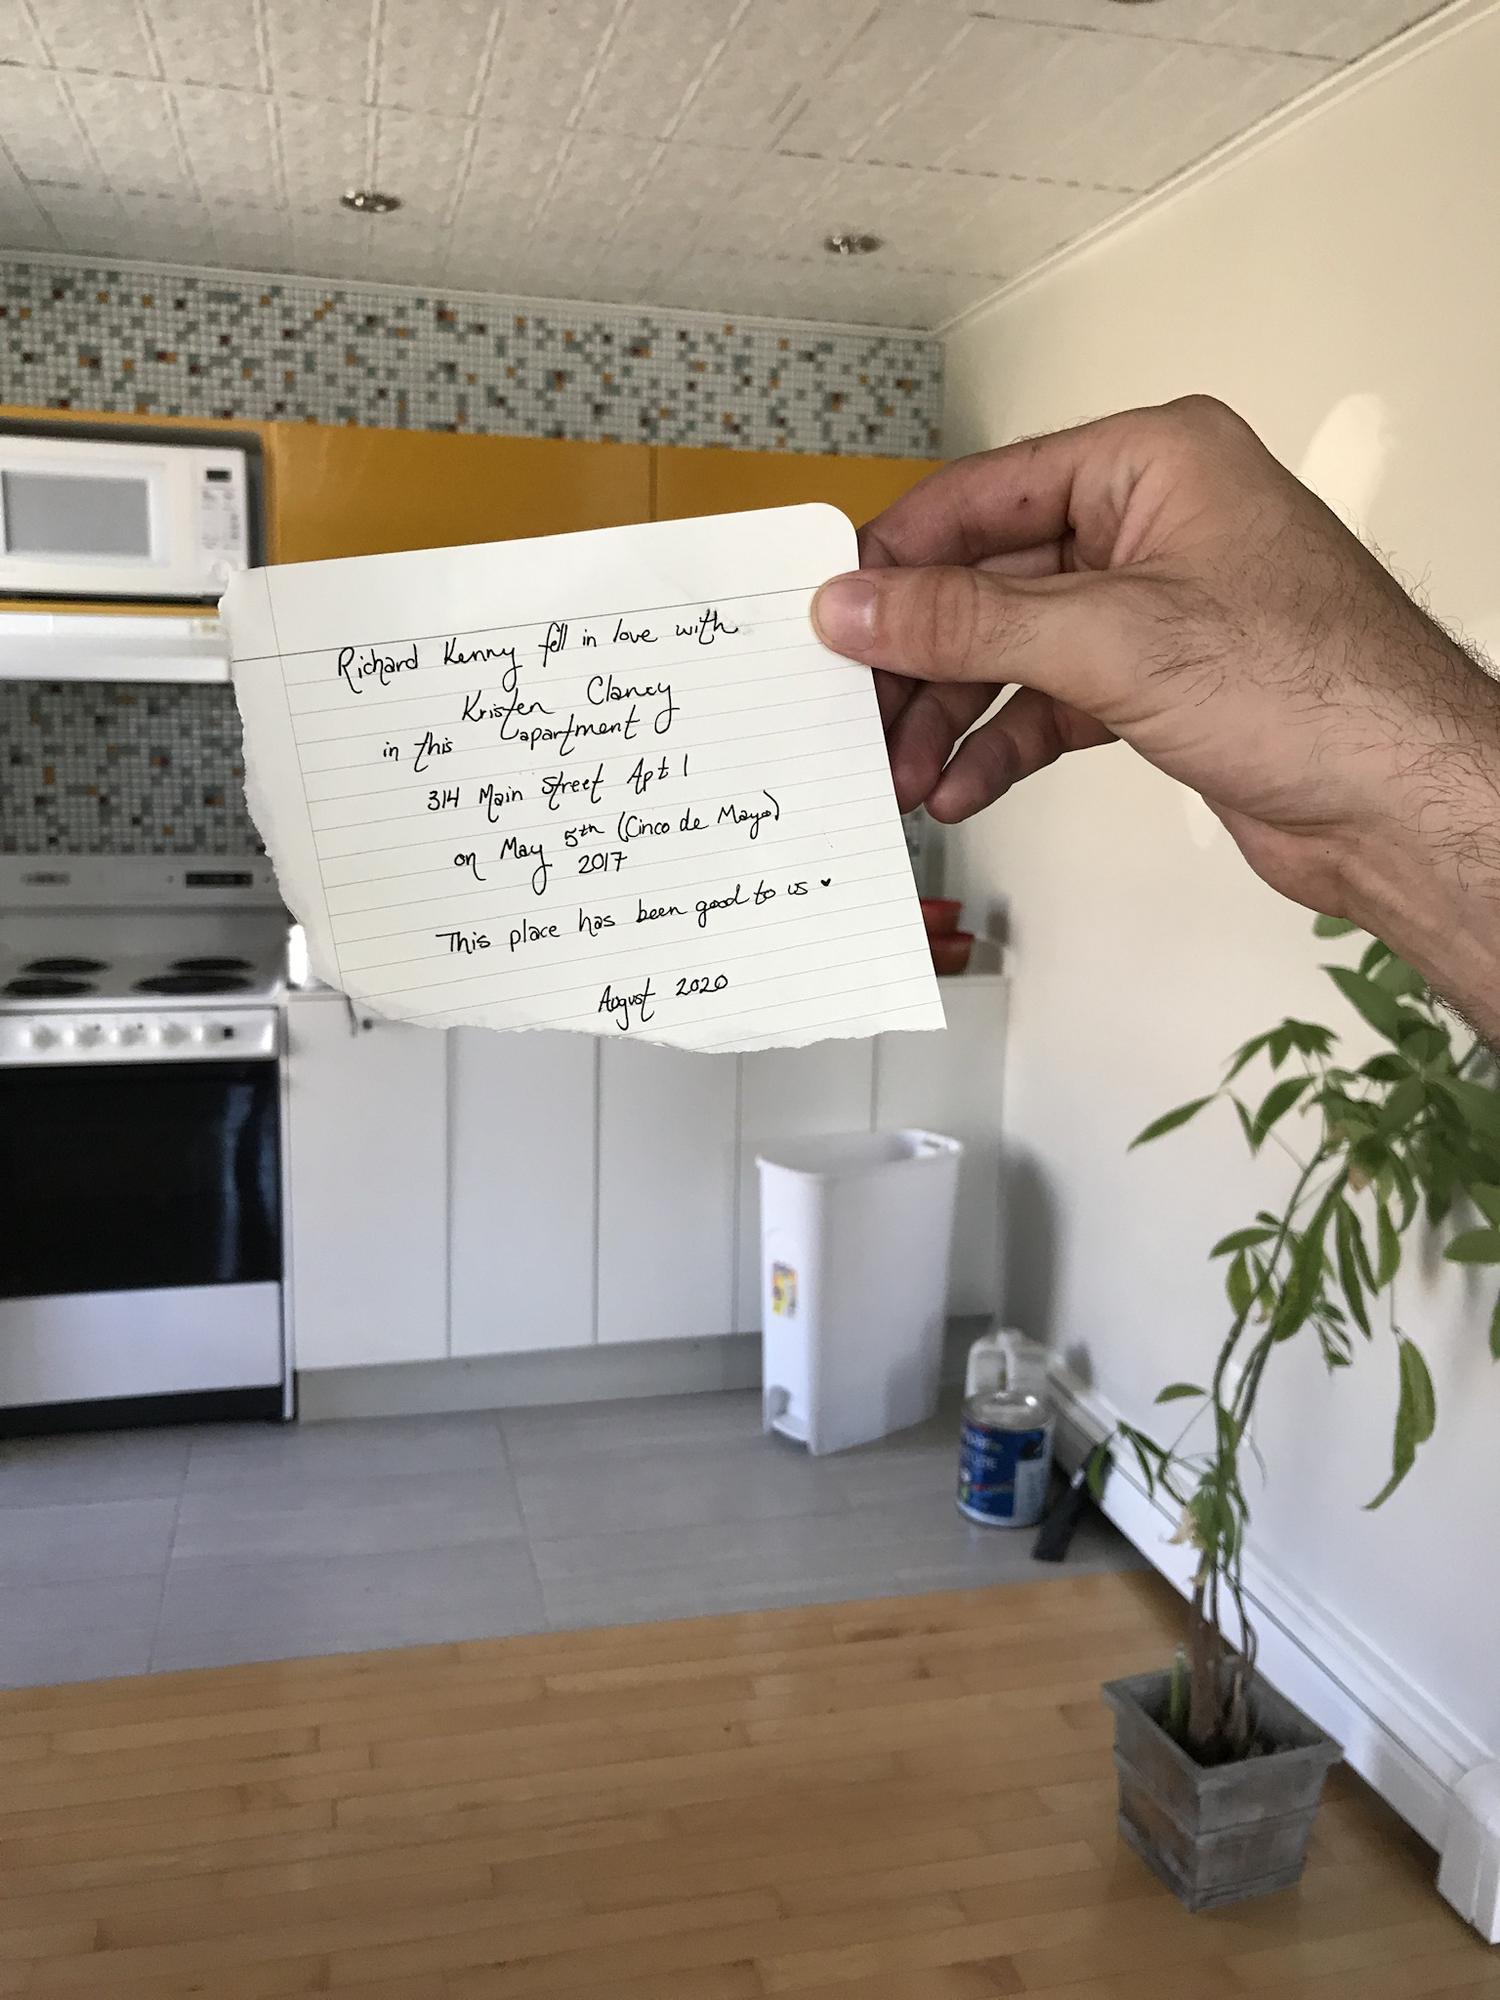 Richard Kenny fell in love with
Kristen Clancy
in this apartment
314 Main Street Apt 1
on May 5th (Cinco de Mayo)
2017
This place has been good to us ♥
August 2020